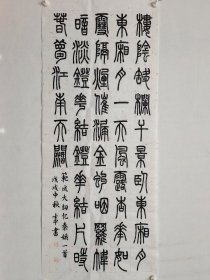 樓陰缺欄干景臥東厢月
東厢月一天風露杏華如
雪隔煙催漏金虬咽羅幃
暗淡鐙華結鐙華結片時
春夢江南天闊
範成大詞忆秦娥一首
戊戌中秋 書